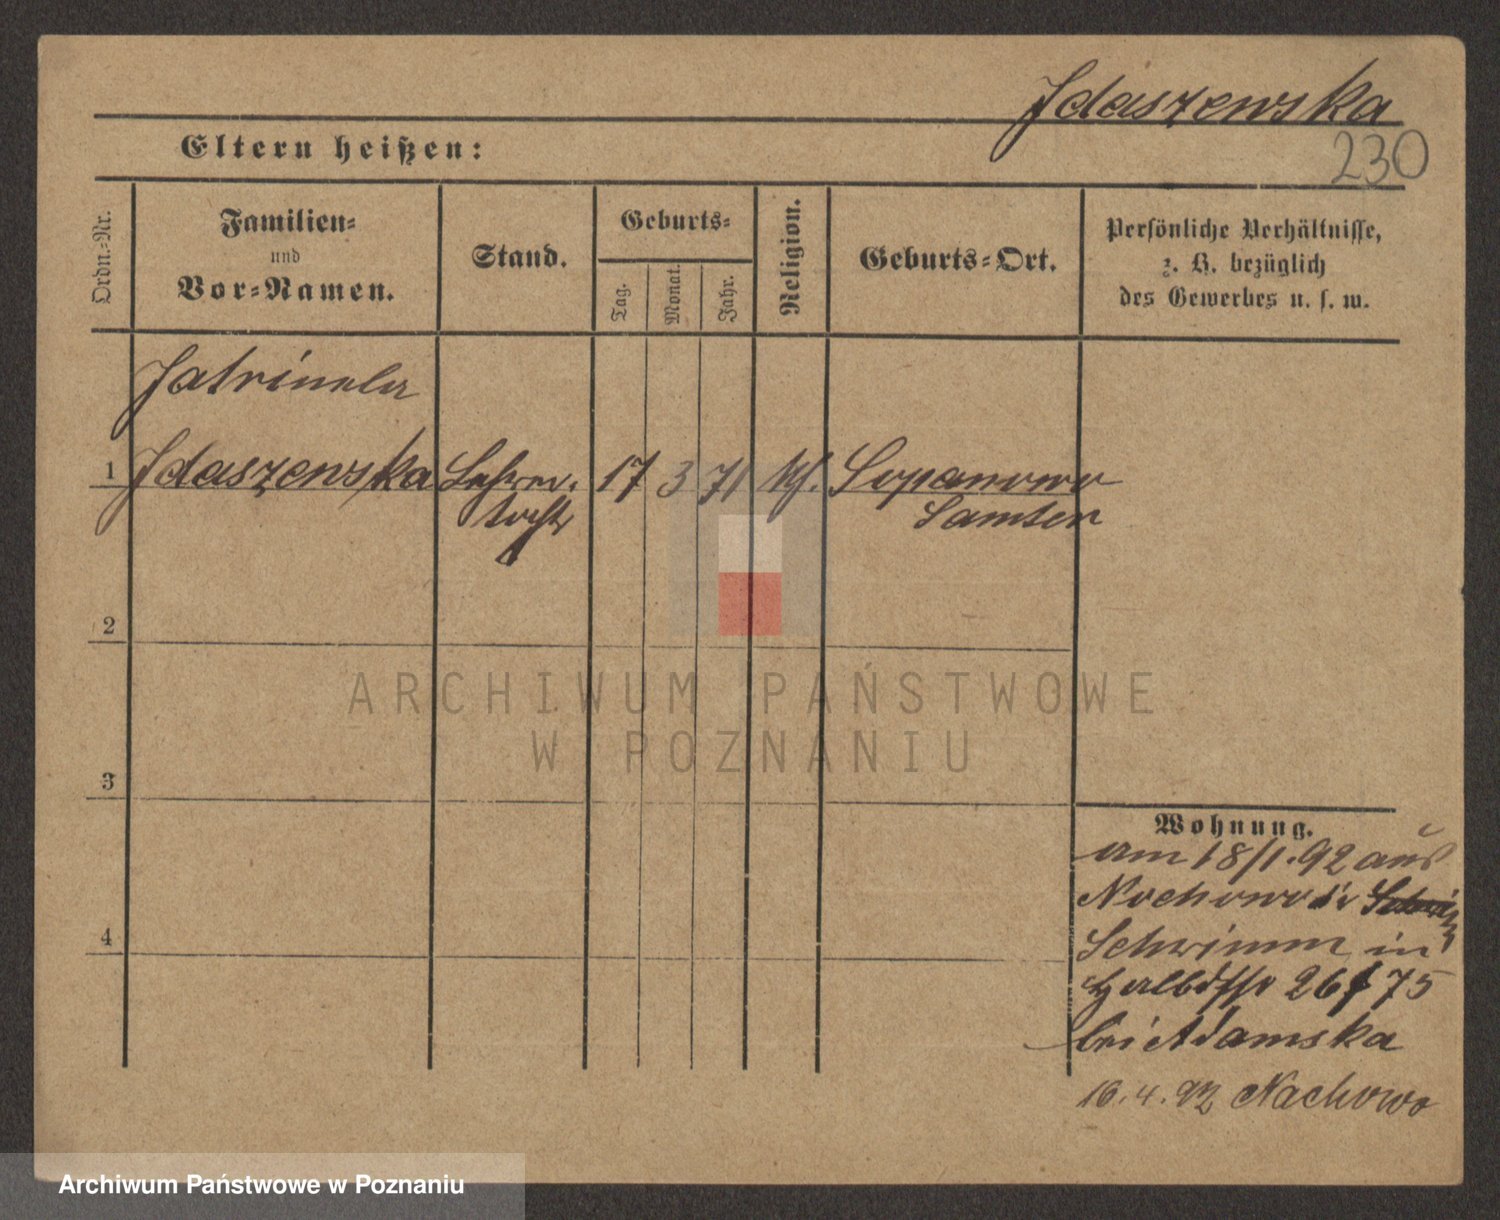 Idaszewska
230
Eltern heißen:
Ordn.=Nr.
Familien=
und
Vor=Namen.
Stand.
Geburts=
Tag.
Monat.
Jahr.
Religion.
Geburts=Ort.
Persönliche Verhältnisse,
z. B. bezüglich
des Gewerbes u. s. w.
1
Idaszewska
Lehrer.
17
3
71
kth.
Lopanowo
tocht
Samter
2
ARCHIWUM PAŃSTWOWE
W POZNANIU
3
Wohnung.
am 18/1. 92 aus
Nochowo
4
Schrimm in
Halbdfstr 26/75
bei Adamska
16. 4. 92 Nachowo
Archiwum Państwowe w Poznaniu